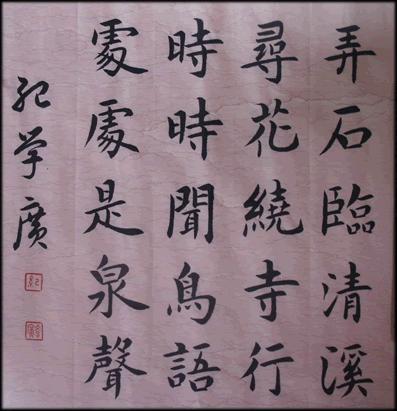 弄石臨清溪
尋花繞寺行
時時聞鳥語
處處是泉聲
紀学廣